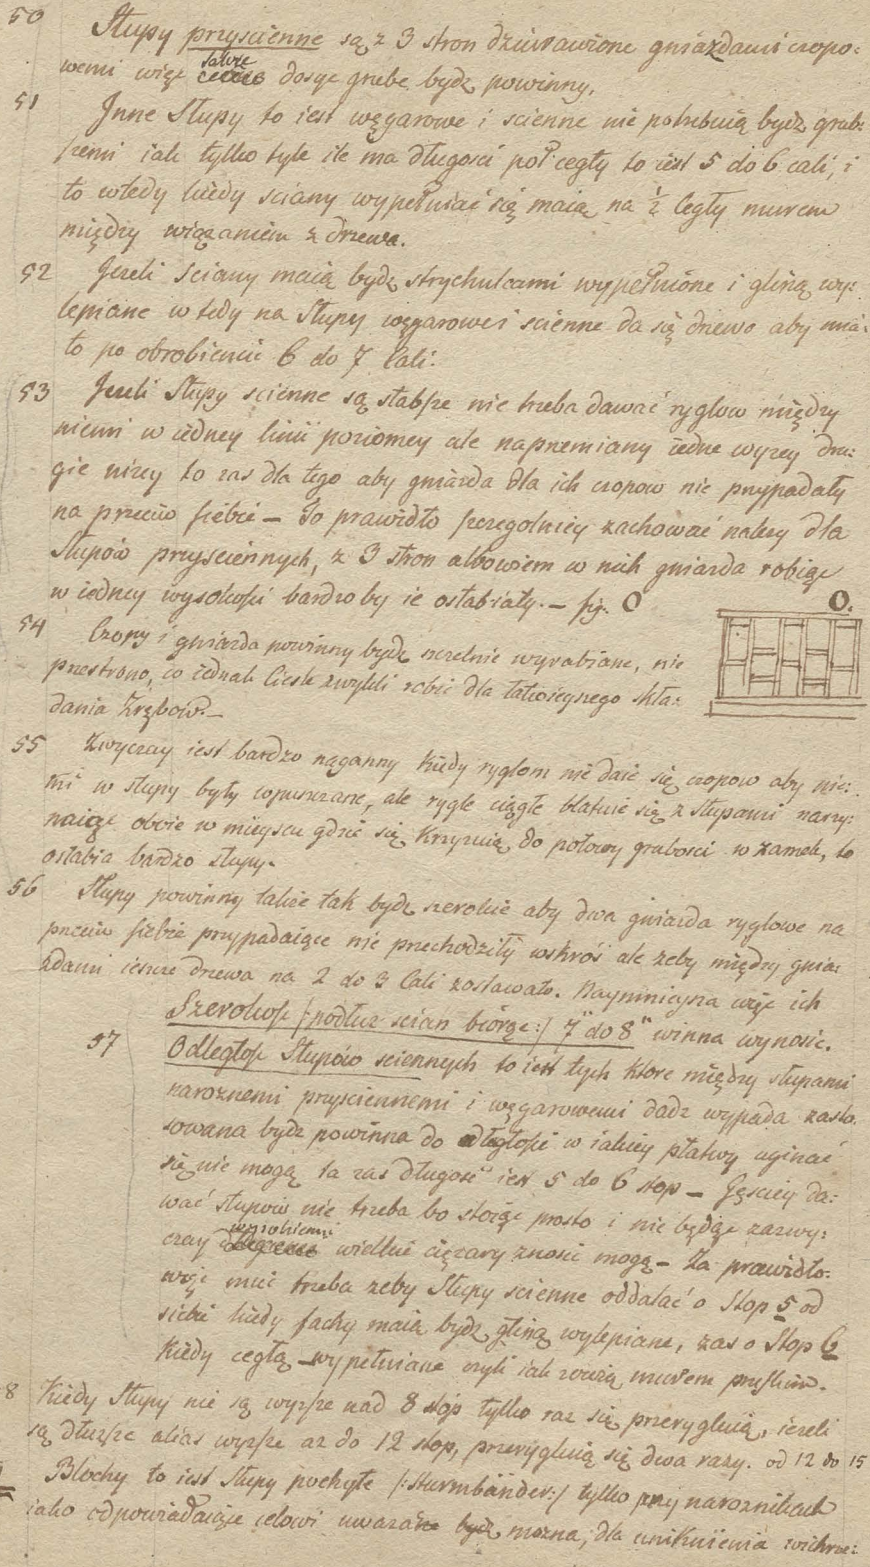 50 Słupy przyscienne są z 3 stron dziurawione gniazdami czopo:
wemi więc także dosyc grube bydz powinny.
51 Inne Słupy to iest węgarowe i scienne nie potrebuią bydz grub:
szemi iak tylko tyle ile ma długosci poł cegły to iest 5 do 6 cali, i
to wtedy kiedy sciany wypełniać się maią na ½ Cegły murem
między wiązaniem z drzewa.
52 Jezeli sciany maią bydz strychulcami wypełnione i gliną wy:
lepiane wtedy na słupy węgarowe i scienne da się drzewo aby mia:
ło po obrobieniu 6 do 7 Cali.
53 Jezeli Słupy scienne są słabsze nie trzeba dawać ryglow między
niemi w iedney linii poziomey ale naprzemiany iedne wyzey dru:
gie nizey to zas dla tego aby gniazda dla ich czopow nie przypadały
na przeciw siebie – To prawidło szczegolniey zachować nalezy dla
Słupów przysciennych, z 3 stron albowiem w nich gniazda robiąc
w iedney wysokosci bardzo by ie osłabiały. – fig. O
O.
54 Czopy i gniazda powinny bydz szczelnie wyrabiane, nie
przestrono, co iednak Ciesle zwykli robic dla łatwieyszego skła:
dania Zrębow. –
55 Zwyczay iest bardzo naganny kiedy ryglom nie daie się czopow aby nie:
mi w słupy były wpuszczane, ale rygle ciągłe blatuie się z słupami narzy:
naiąc oboie w mieyscu gdzie się krzyzuią do połowy grubosci w zamek, to
osłabia bardzo słupy.
56 Słupy powinny także tak bydz szerokie aby dwa gniazda ryglowe na
przeciw siebie przypadaiące nie przechodziły wskroś ale zeby między gnia:
zdami ieszcze drzewa na 2 do 3 Cali zostawało. Naymnieysza więc ich
Szerokosc /:podłuz scian biorąc:/ 7" do 8" winna wynosic.
57 Odległosc Słupów sciennych to iest tych ktore między słupami
naroznemi przysciennemi i węgarowemi dadz wypada zasto:
sowana bydz powinna do odległosci w iakiey płatwy uginać
się nie mogą ta zas długosć iest 5 do 6 stop – Gęsciey da:
wać słupow nie trzeba bo stoiąc prosto i nie będąc zazwy:
czay wielkie cięzary znosic mogą – Za prawidło
więc miec trzeba zeby Słupy scienne oddalać o Stop 5 od
siebie kiedy fachy maią bydz gliną wylepiane, zas o Stop 6
kiedy cegłą wypełniane czyli iak zowią murem pruskim.
8 Kiedy Słupy nie są wyzsze nad 8 stóp tylko raz się przerygluią, iezeli
są dłuzsze alias wyzsze az do 12 stop, przerygluią się dwa razy. od 12 do 15
Blochy to iest Słupy pochyłe /:Sturmbänder:/ tylko przy naroznikach
iako odpowiadaiące celowi uwazane bydz mozna, dla uniknienia wichrze: